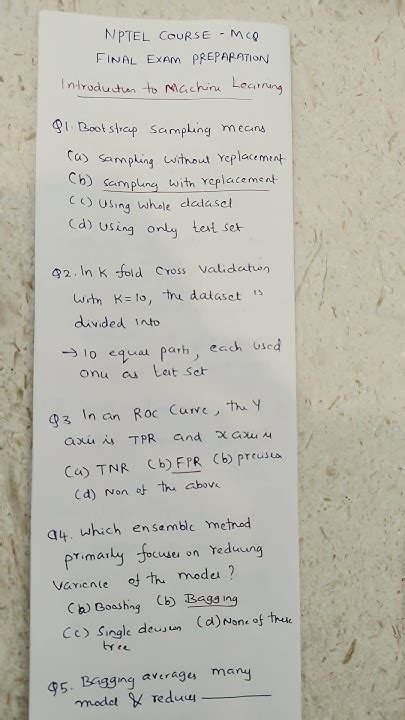 NPTEL COURSE - MCQ
FINAL EXAM PREPARATION
Introduction to Machine Learning
Q1. Bootstrap sampling means
(a) sampling without replacement
(b) sampling with replacement
(c) Using whole dataset
(d) Using only test set
Q2. In K fold cross validation
with K=10, the dataset is
divided into
→ 10 equal parts, each used
once as test set
Q3 In an ROC Curve, the Y
axis is TPR and X axis is
(a) TNR (b) FPR (b) precision
(d) Non of the above
Q4. Which ensemble method
primarily focuses on reducing
Varience of the model?
(a) Boosting (b) Bagging
(c) Single decision (d) None of these
tree
Q5. Bagging averages many
model & reduces ________